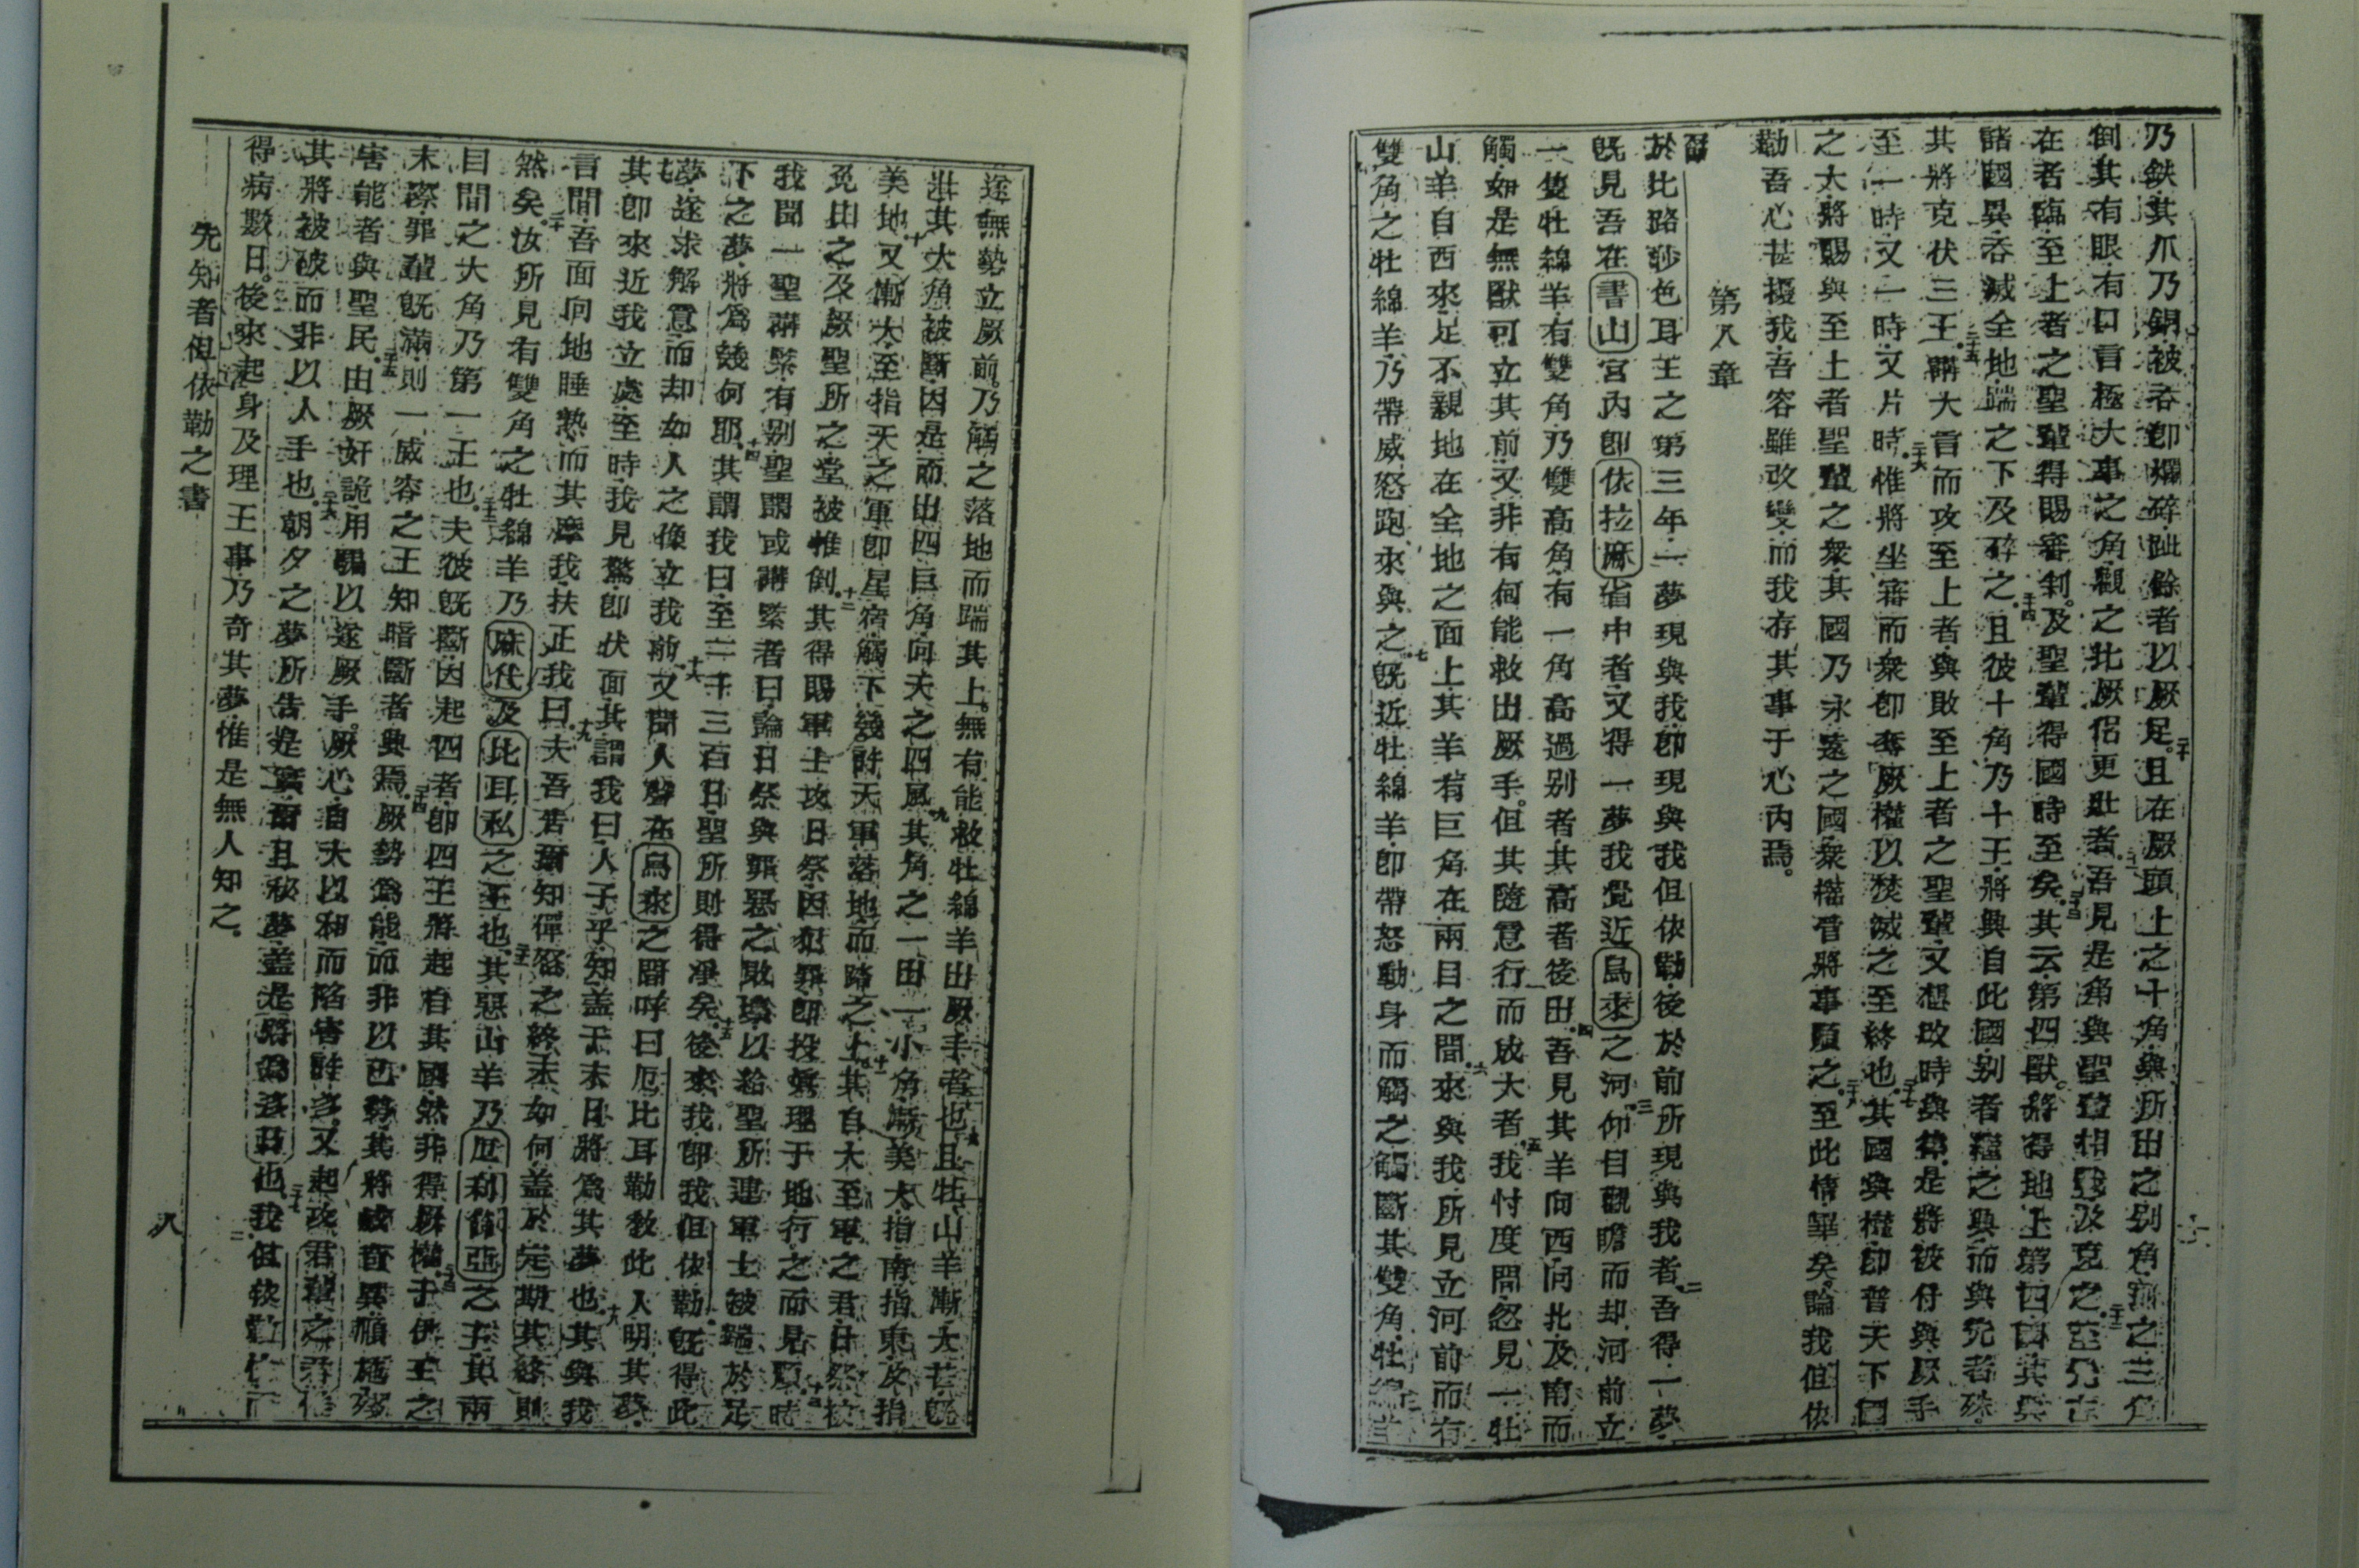 乃鉄其爪乃銅被吞卽爛碎跐餘者以厥足二十且在厥頭上之十角與所出之别角前之三角
倒其有眼有口言極大事之角觀之比厥侶更壯者吾見是角與聖輩相戰及克之
在者臨至上者之聖輩得賜審判及聖輩得國時至矣其云第四獸將得地上第四國其與
諸國異吞滅全地踹之下及碎之且彼十角乃十王將興自此國别者繼之興而與先者殊
其將克伏三王二十五講大言而攻至上者與敗至上者之聖輩又想改時與律是將被付與厥手
至一時又一時又片時二十六惟將坐審而衆卽奪厥權以焚滅之至終也其國與權卽普天下國
之大將賜與至上者聖輩之衆其國乃永遠之國衆權皆將事順之二十八至此情畢矣論我但依
勒吾心甚擾我吾容雖改變而我存其事于心內焉
第八章
於比路莎色耳王之第三年一夢現與我卽現與我但依勒後於前所現與我者二吾得一夢
旣見吾在書山宮內卽依拉麻省中者又得一夢我覺近烏來之河三仰目觀瞻而却河前立
一隻牡綿羊有雙角乃雙高角有一角高過别者其高者後出四吾見其羊向西向北及南而
觸如是無獸可立其前又非有何能救出厥手但其隨意行而放大者五我忖度間忽見一牡
山羊自西來足不親地在全地之面上其羊有巨角在兩目之間六來與我所見立河前而有
雙角之牡綿羊乃帶威怒跑來與之七旣近牡綿羊卽帶怒動身而觸之觸斷其雙角牡綿羊
遂無勢立厥前乃觸之落地而踹其上無有能救牡綿羊出厥手者也八且牡山羊漸大甚旣
壯其大角被斷因是而出四巨角向天之四風九其角之一出一小角漸美大指南指東及指
美地十又漸大至指天之軍卽星宿觸下幾許天軍落地而踏之上十一其自大至軍之君日祭
我聞一聖講緊有别聖謂或講緊者曰論日祭與罪惡之敗壞以給聖所連軍士被踹於足
下之夢將爲幾何耶十四其謂我曰至二千三百日聖所則得淨矣十五後來我卽我但依勒旣得此
夢遂求解意而却如人之像立我前十六又聞人聲在烏來之間呼曰厄比耳勒敎此人明其夢
其卽來近我立處至時我見驚卽伏面其謂我曰人子乎知盖于末日將爲其夢也十八其與我
言間吾面向地睡熟而其摩我扶正我十九曰夫吾告爾知彈怒之終末如何盖於定期其終則
然矣二十汝所見有雙角之牡綿羊乃麻代及比耳私之王也二十一其惡山羊乃厄利但亞之王其兩
目間之大角乃第一王也二十二夫彼旣斷因起四者卽四王將起自其國然非得厥權二十三于伊王之
末際罪輩旣滿則一威容之王知暗斷者興焉二十四厥勢爲能而非以己
害能者與聖民二十五由厥奸詭用騙以遂厥手厥心自大以和而陷害許多又起攻君輩之君
其將被破而非以人手也二十六朝夕之夢所告是實爾且秘夢盖是也二十七我但依勒
得病數日後來起身及理王事乃奇其夢惟是無人知之
先知者但依勒之書
八